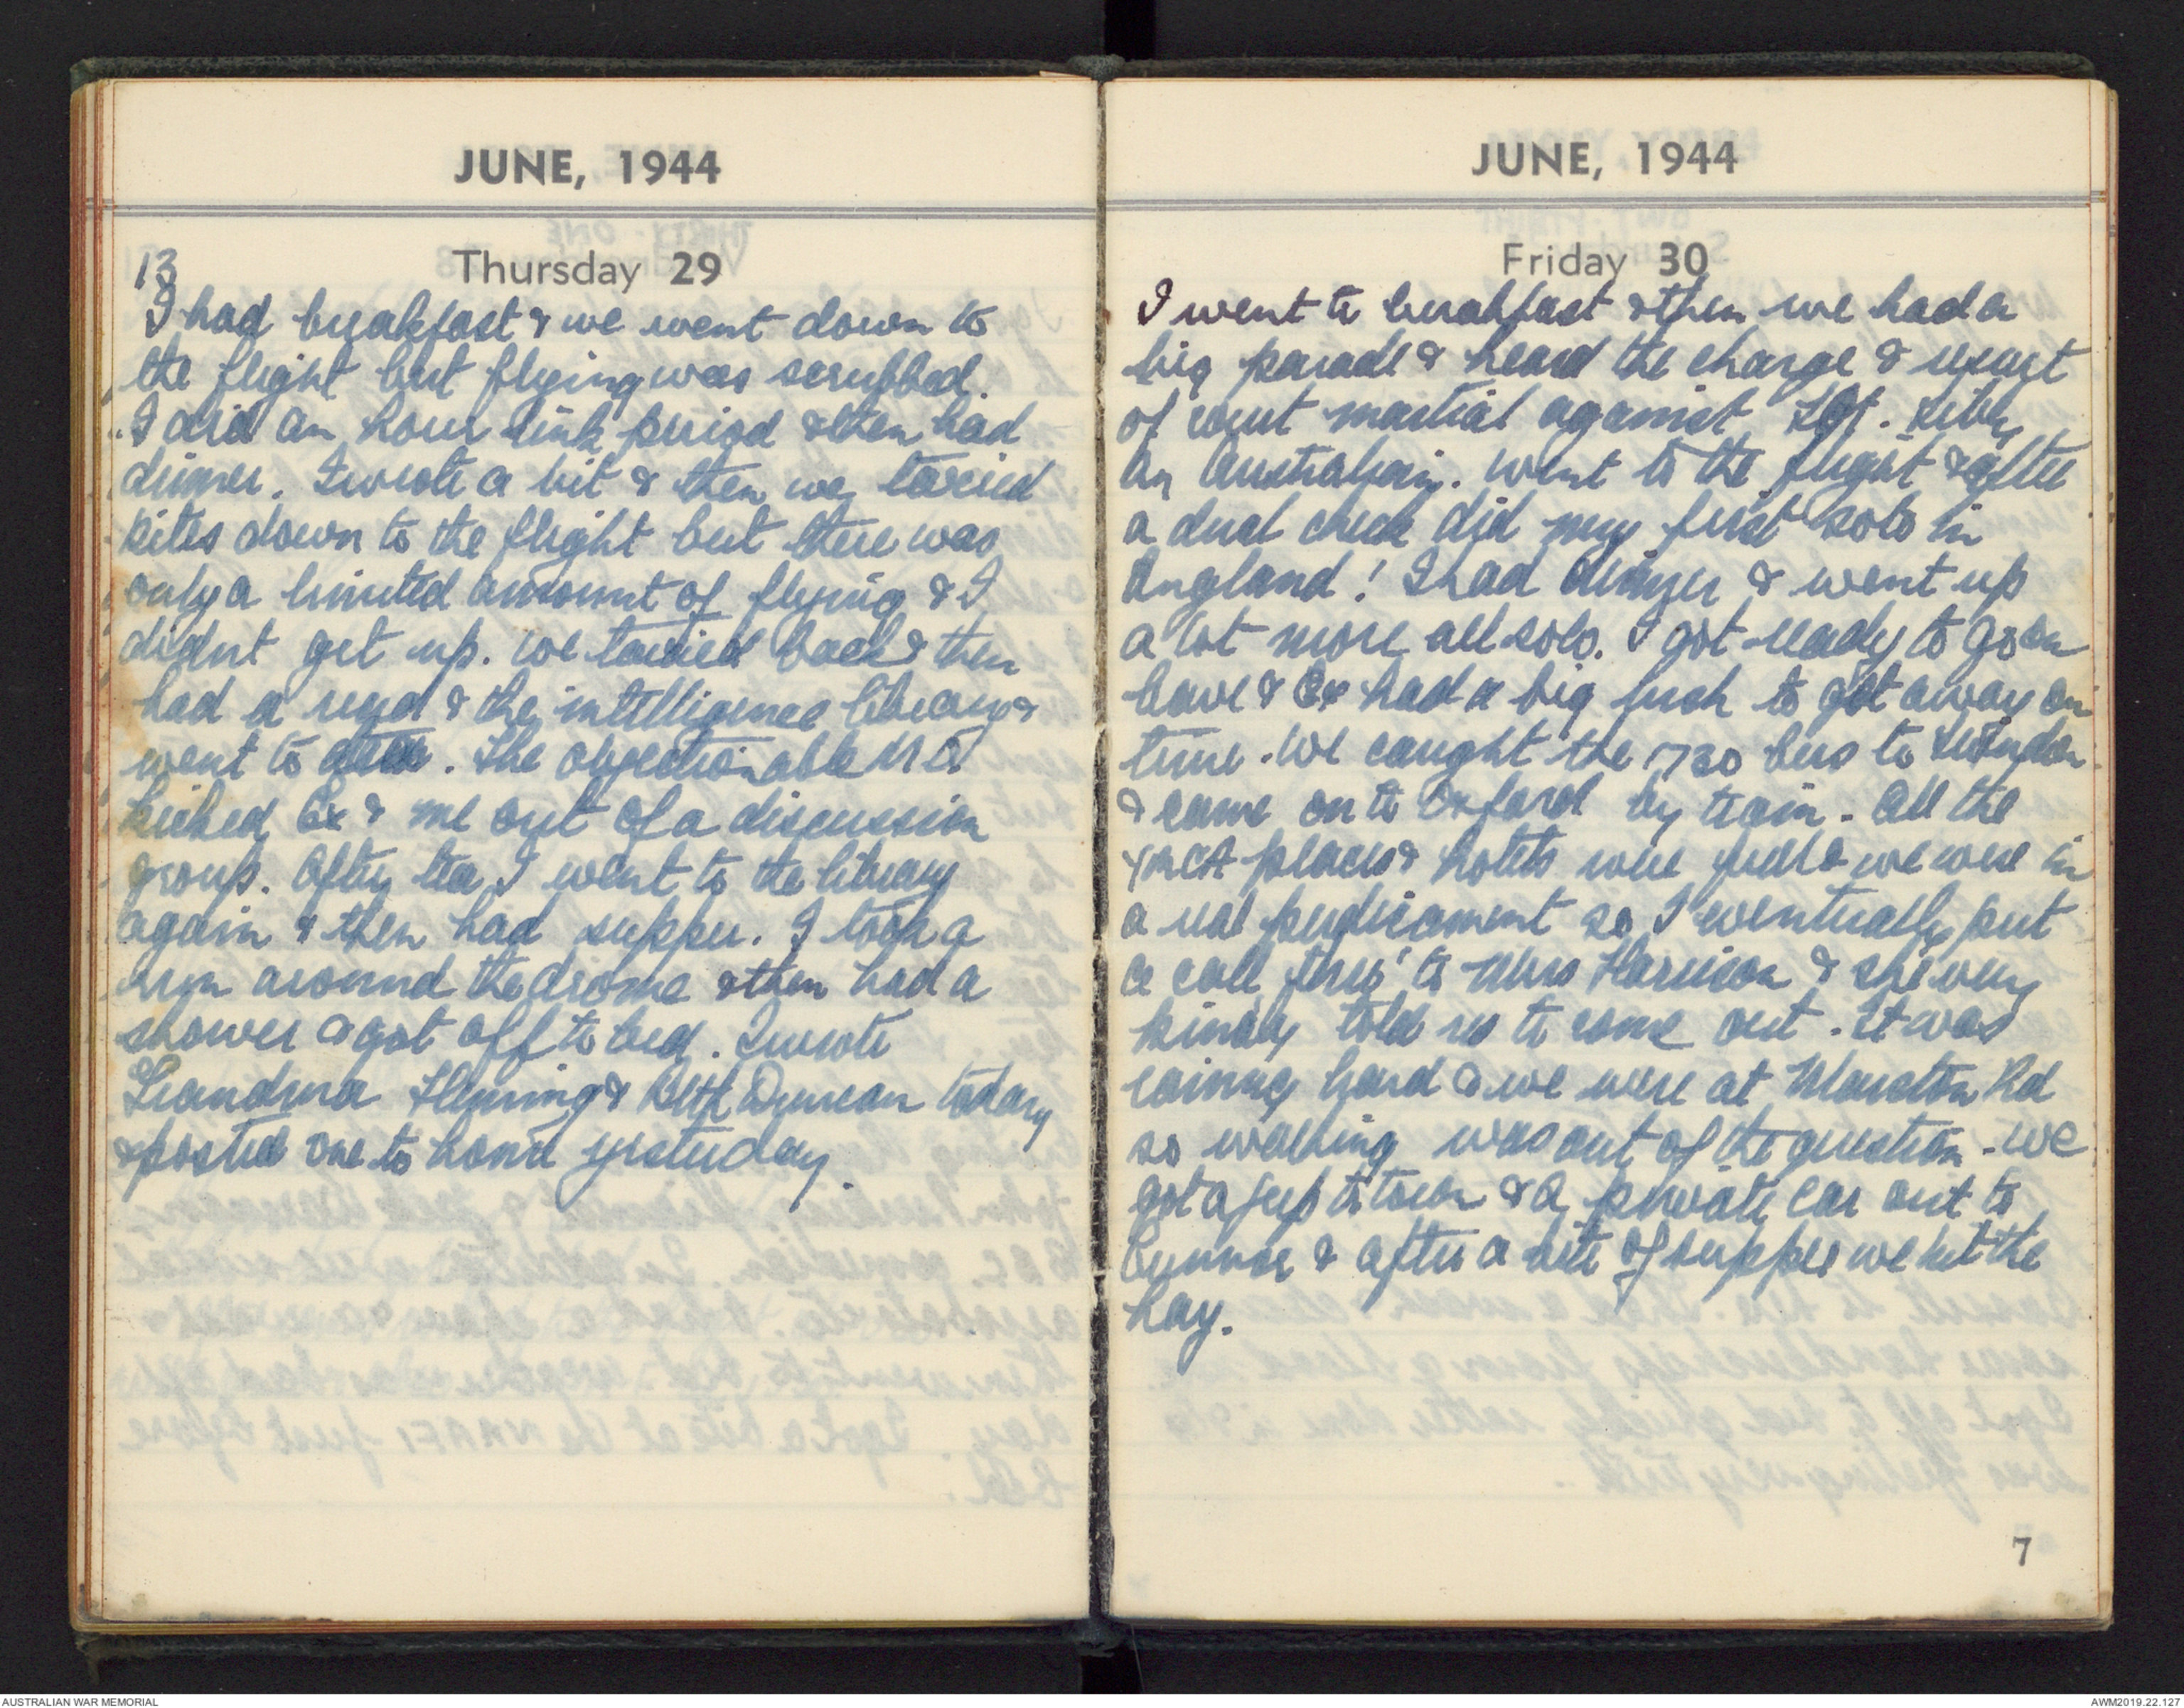 JUNE, 1944
Thursday 29
13
I had breakfast & we went down to
the flight but flying was scrubbed.
I did an hour link period & then had
dinner. I wrote a bit & then we taxied
kites down to the flight but there was
only a limited amount of flying & I
didnt get up. We taxied back & then
had a read & the intelligence library &
went to . The objectionable
kicked Ex & me out of a discussion
group. After tea I went to the library
again & then had supper. I took a
run around the drome & then had a
shower & got off to bed. I wrote
Grandma Fleming & Beth Duncan today
& posted one to home yesterday.
JUNE, 1944
Friday 30
I went to breakfast & then we had a
big parade & heard the charge & result
of court martial against Sgt.
an Australian. Went to the flight & after
a dual check did my first solo in
England! I had dinner & went up
a lot more all solo. I got ready to go on
leave & Ex had a big rush to get away on
time. We caught the 720 bus to Swindon
& came on to Oxford by train. All the
YMCA places & hotels were full & we were in
a real predicament so I eventually put
a call thro' to Mrs Harrison & she very
kindly told us to come out. It was
raining hard & we were at Marston Rd
so walking was out of the question. We
got a jeep to town & a private car out to
Cumnor & after a bite of supper we hit the
hay.
7
AUSTRALIAN WAR MEMORIAL
AWM2019.22.127